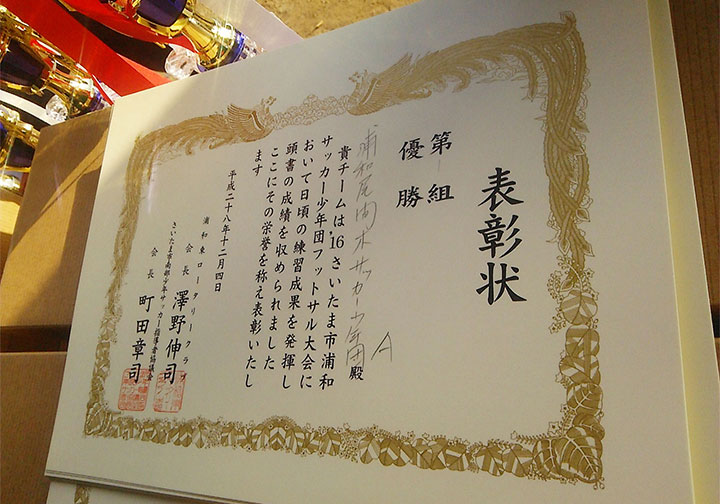 表彰状
第一組
優勝
浦和尾間木サッカー少年団 A 殿
貴チームは'16さいたま市浦和
サッカー少年団フットサル大会に
おいて日頃の練習成果を発揮し
頭書の成績を収められました
ここにその栄誉を称え表彰いたし
ます
平成二十八年十二月四日
浦和東ロータリークラブ
会長 澤野伸司
さいたま市南部少年サッカー指導者協議会
会長 町田章司